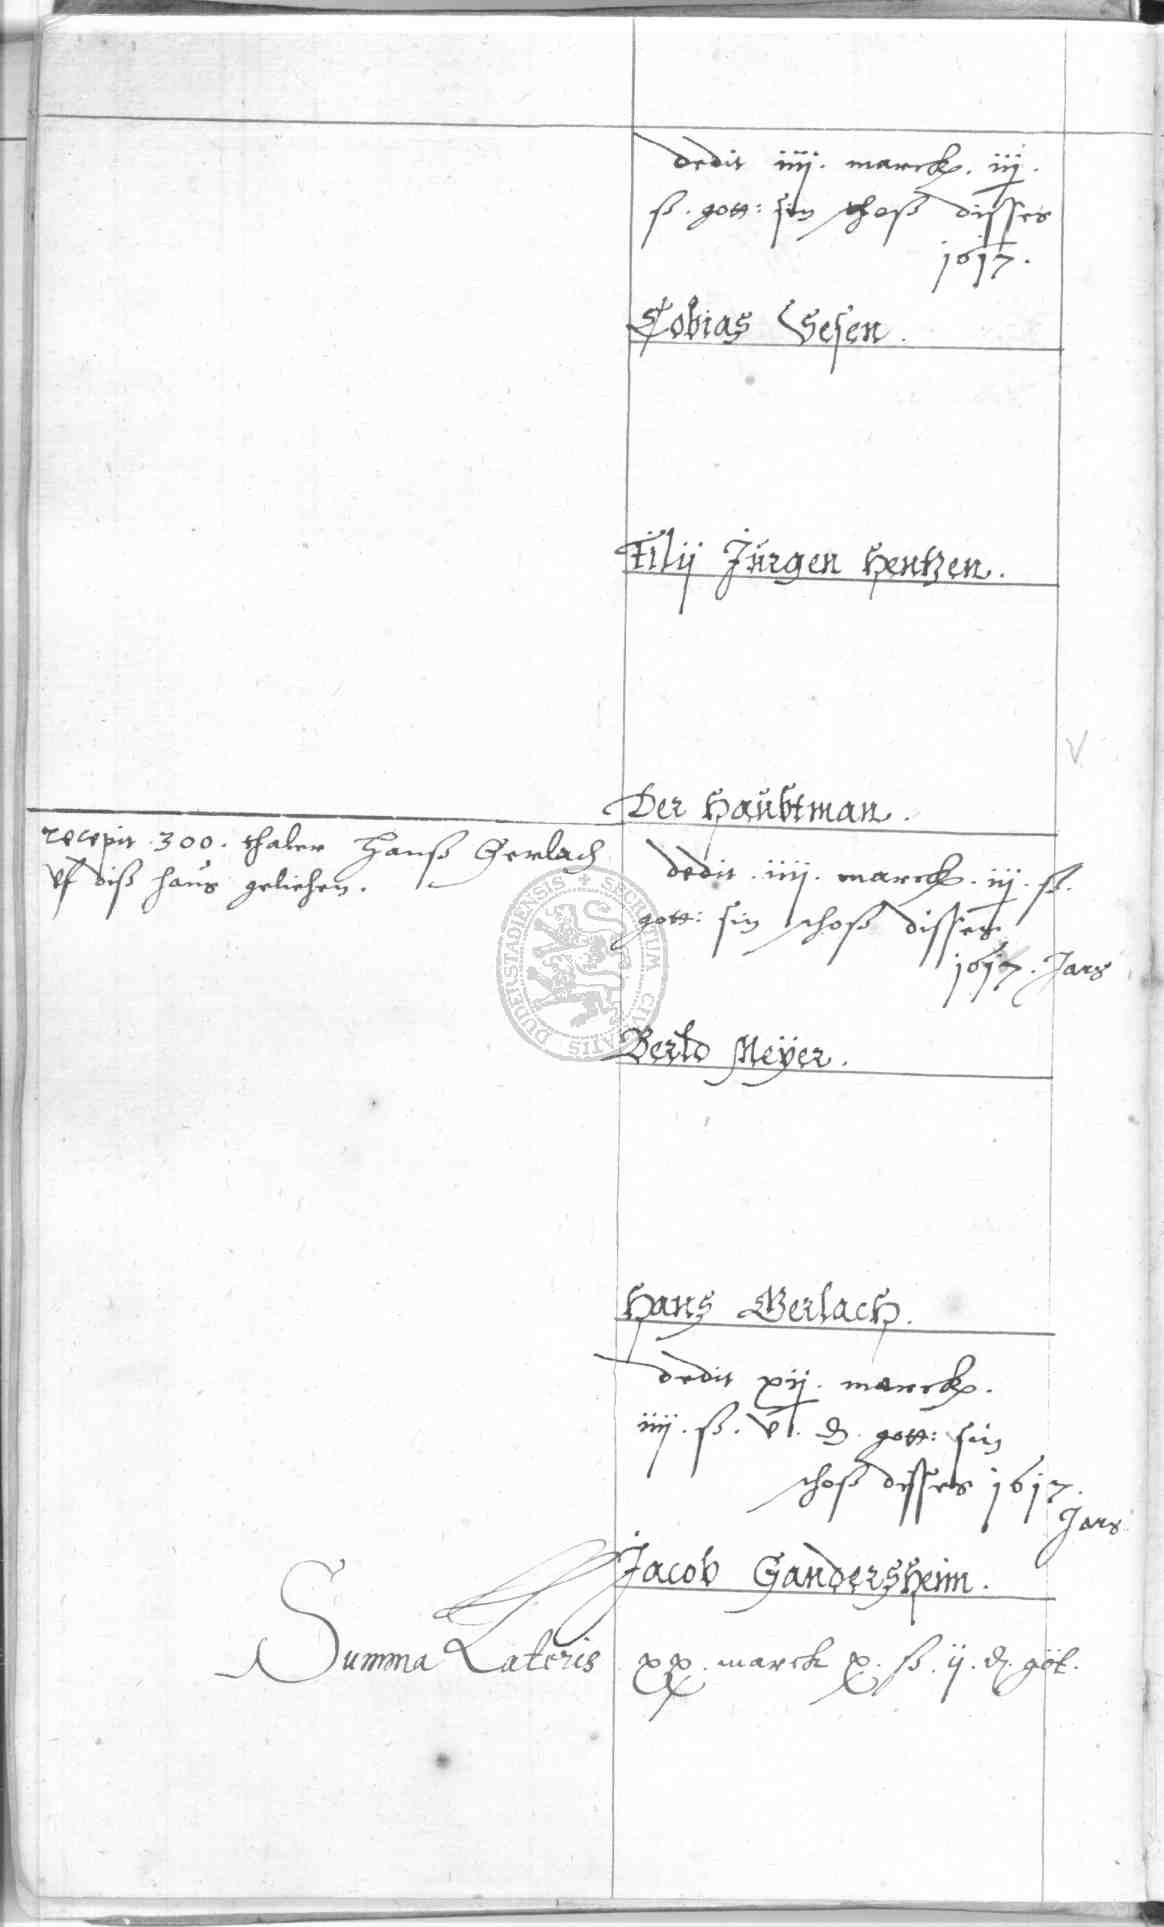 dedit iiij. marck. iij.
ß. gott: sin schoß disses
1617.
Tobias Vesen.
Filij Jürgen Hentzen.
Der Haubtman.
recepit 300. thaler Hanß Gerlach
vf diß haus geliehen.
dedit. iiij. marck. iij. ß.
gott: sin schoß disses
1617. Jars
Bertd Meÿer.
Hans Gerlach.
dedit xij. marck.
iiij. ß. vi. ₰. gott: sin
schoß disses 1617.
Jars
Jacob Gandersheim.
Summa Lateris xx. marck x. ß. ij. ₰. göt.
SECRETUM CIVITATIS DUDERSTADIENSIS